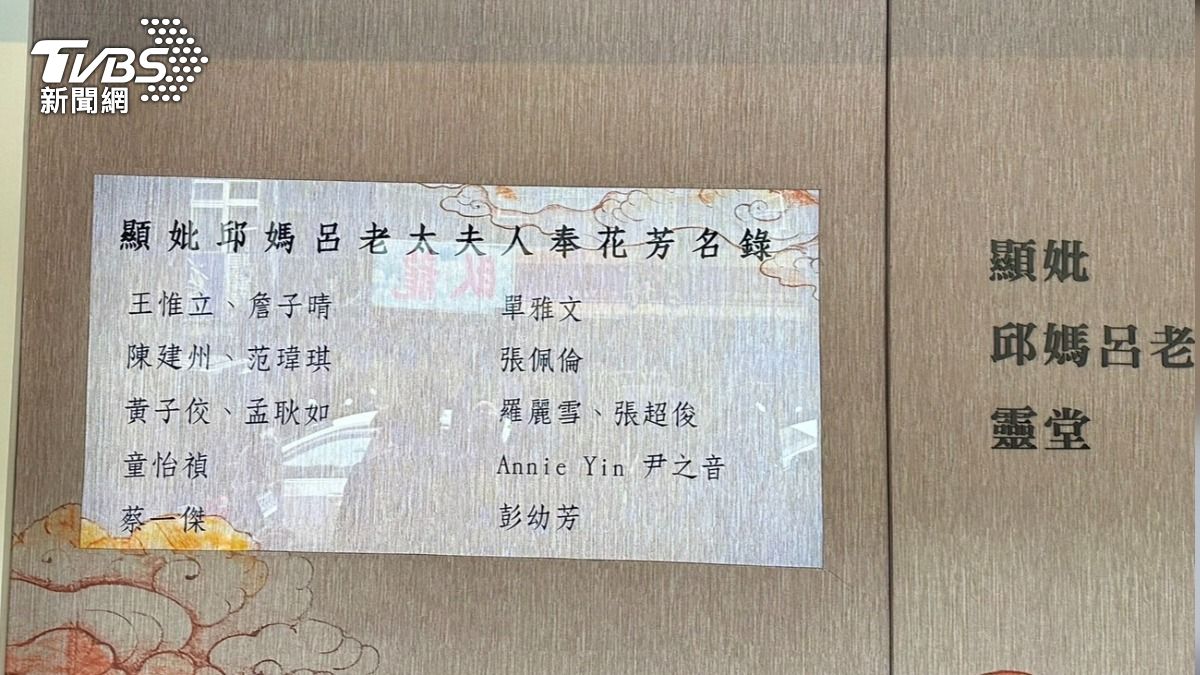 TVBS
新聞網
顯妣邱媽呂老太夫人奉花芳名錄
王惟立、詹子晴
單雅文
陳建州、范瑋琪
張佩倫
黃子佼、孟耿如
羅麗雪、張超俊
童怡禎
Annie Yin 尹之音
蔡一傑
彭幼芳
臥龍
顯妣
邱媽呂老
靈堂